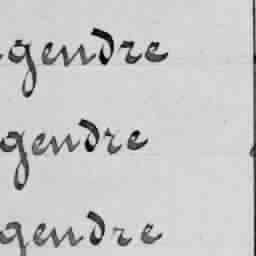 gendre
gendre
gendre